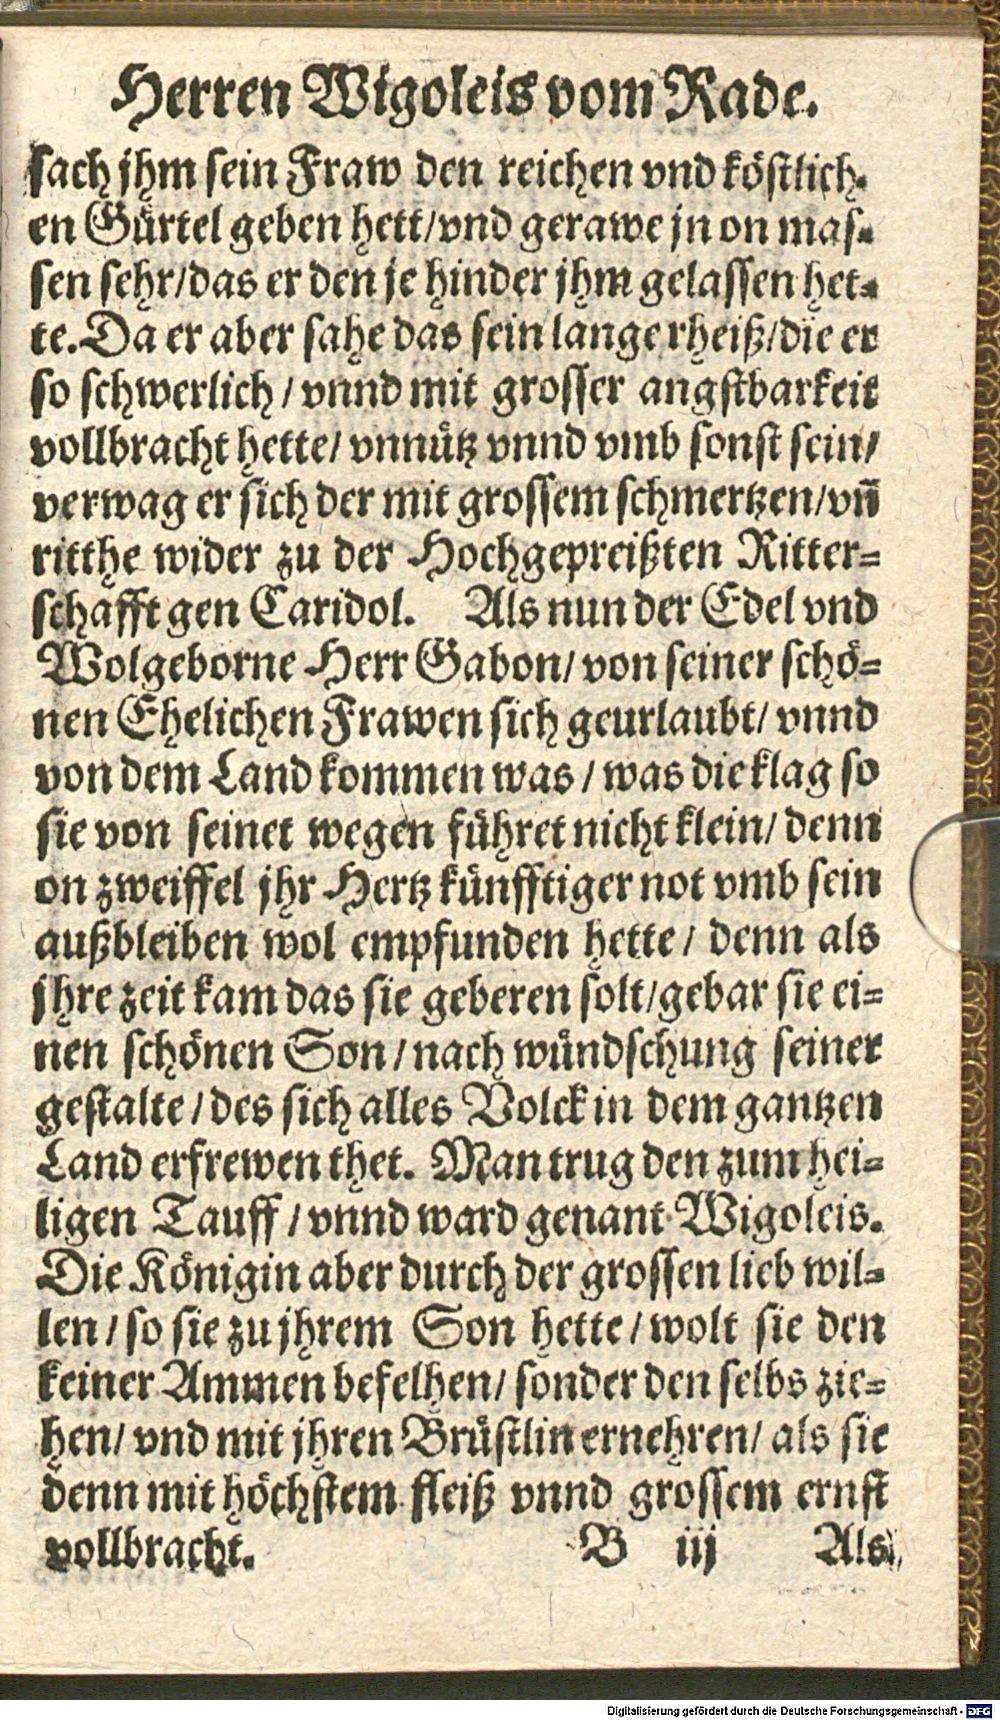 Herren Wigoleis vom Rade.
sach jhm sein Fraw den reichen vnd köstlich-
en Gürtel geben hett/vnd gerawe jn on mas-
sen sehr/das er den je hinder jhm gelassen het-
te. Da er aber sahe das sein lange rheiß/die er
so schwerlich/vnnd mit grosser angstbarkeit
vollbracht hette/vnnütz vnnd vmb sonst sein/
verwag er sich der mit grossem schmertzen/vñ
ritthe wider zu der Hochgepreißten Ritter-
schafft gen Caridol. Als nun der Edel vnd
Wolgeborne Herr Gabon/von seiner schö-
nen Ehelichen Frawen sich geurlaubt/vnnd
von dem Land kommen was/was die klag so
sie von seinet wegen führet nicht klein/denn
on zweiffel jhr Hertz künfftiger not vmb sein
außbleiben wol empfunden hette/denn als
jhre zeit kam das sie geberen solt/gebar sie ei-
nen schönen Son/nach wündschung seiner
gestalte/des sich alles Volck in dem gantzen
Land erfrewen thet. Man trug den zum hei-
ligen Tauff/vnnd ward genant Wigoleis.
Die Königin aber durch der grossen lieb wil-
len/so sie zu jhrem Son hette/wolt sie den
keiner Ammen befelhen/sonder den selbs zie-
hen/vnd mit jhren Brüstlin ernehren/als sie
denn mit höchstem fleiß vnnd grossem ernst
vollbracht. B iij Als
Digitalisierung gefördert durch die Deutsche Forschungsgemeinschaft - DFG